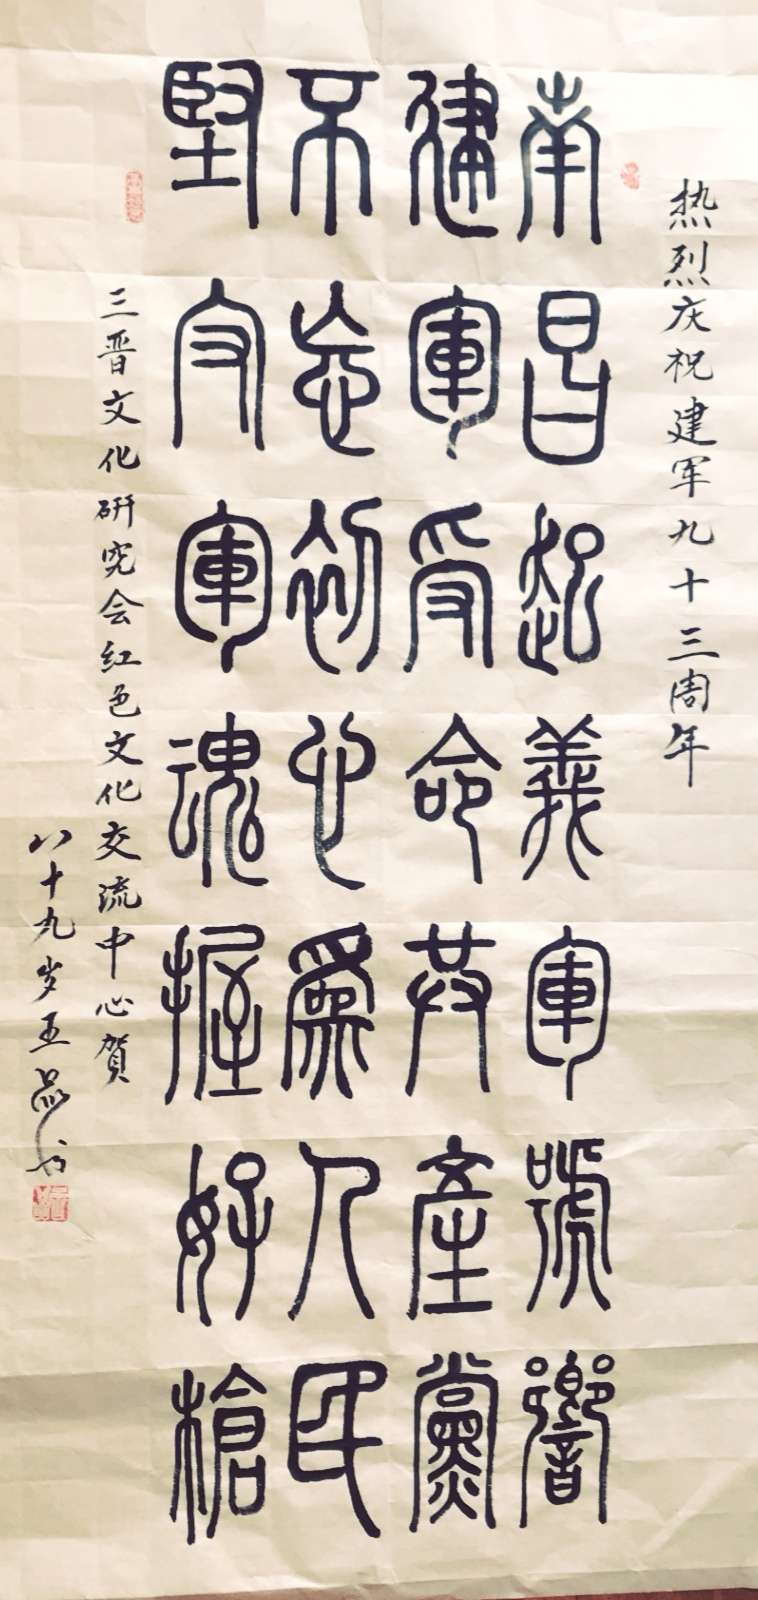 热烈庆祝建军九十三周年
南昌起義軍號響
建軍受命共產黨
不忘初心為人民
堅守軍魂握好槍
三晋文化研究会红色文化交流中心贺
八十九岁王品